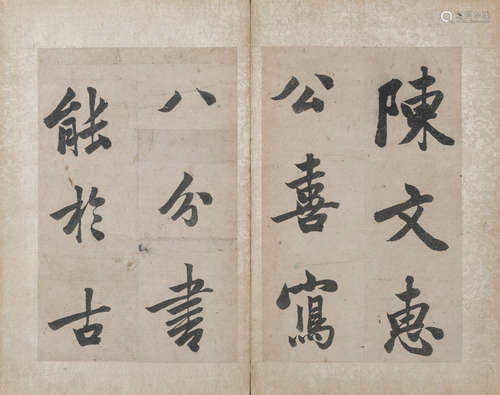 陳文惠
公喜寫
八分書
能於古